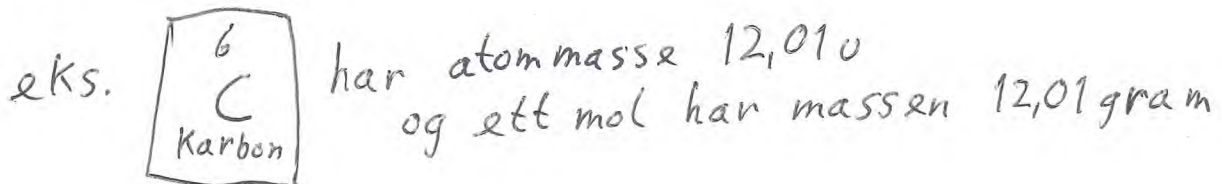 eks.
6
C
Karbon
har atommasse 12,01u
og ett mol har massen 12,01 gram